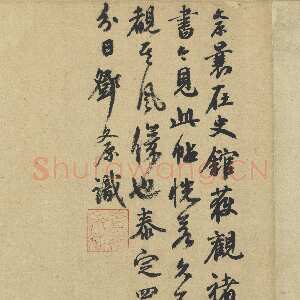 文原曩在史館獲觀褚
書今見此帖恍若久
覩其風僊也泰定四
分日鄧文原識
Shufawang.CN